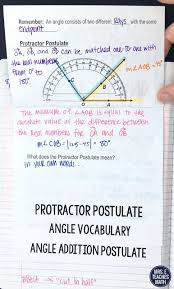 Remember: An angle consists of two different rays with the same
endpoint
Protractor Postulate
OA, OB, and OD can be matched one to one with
the real numbers
from 0 to
180
m∠AOB =
The measure of ∠AOB is equal to the
absolute value of the difference between
the real numbers for OA and OB
m∠COB = |125-45| = 80°
What does the Protractor Postulate mean?
in your own words
PROTRACTOR POSTULATE
ANGLE VOCABULARY
ANGLE ADDITION POSTULATE
bisect → "cut in half"
MRS. E
TEACHES
MATH